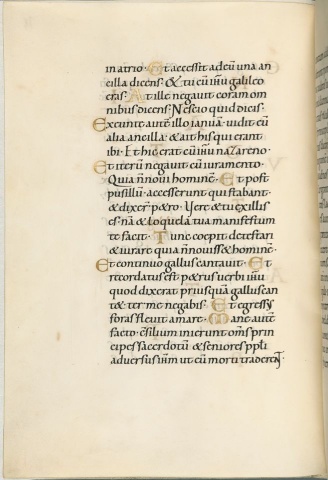 in atrio· Et accessit ad eū una an
cilla dicens· & tu cū iħu galileo
eras· At ille negavit coram om
nibus dicens· Nescio quid dicis·
Exeunte autē illo ianuā· vidit eū
alia ancilla· & ait his qui erant
ibi· Et hic erat cū iħu nazareno·
Et iterū negavit cū iuramento·
Quia ñ novi hominē· Et post
pusillū· accesserunt qui stabant·
& dixer̄ p&ro· Vere & tu ex illis
es· nā & loquela tua manifestum
te facit· Tunc coepit detestari
& iurare quia ñ noviss& hominē·
Et continuo gallus cantavit· Et
recordatus est p&rus verbi iħu
quod dixerat priusquā gallus can
t& ter me negabis· Et egressus
foras flevit amare· Mane autē
facto· cōsilium inierunt om̄s prin
cipes sacerdotū & seniores pp̄li
adversus iħm ut eū morti traderēt